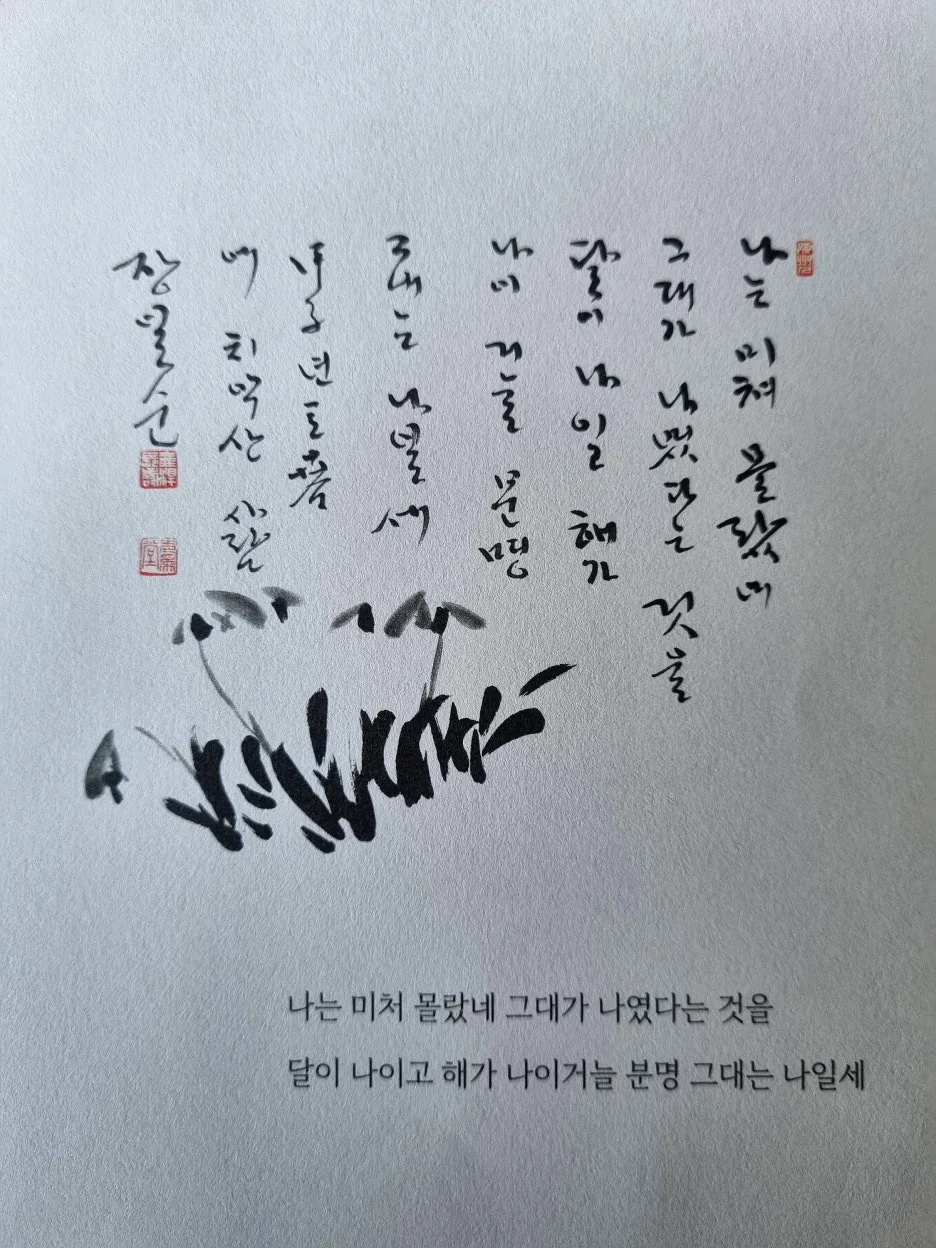 나는 미쳐 몰랐네
그대가 나였다는 것을
달이 나일 해가
나이거늘 분명
그대는 나일세
년
에 치악산 사람
장일순
나는 미처 몰랐네 그대가 나였다는 것을
달이 나이고 해가 나이거늘 분명 그대는 나일세